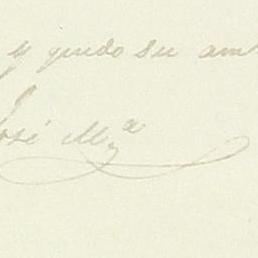 y quedo su am
José M.ª